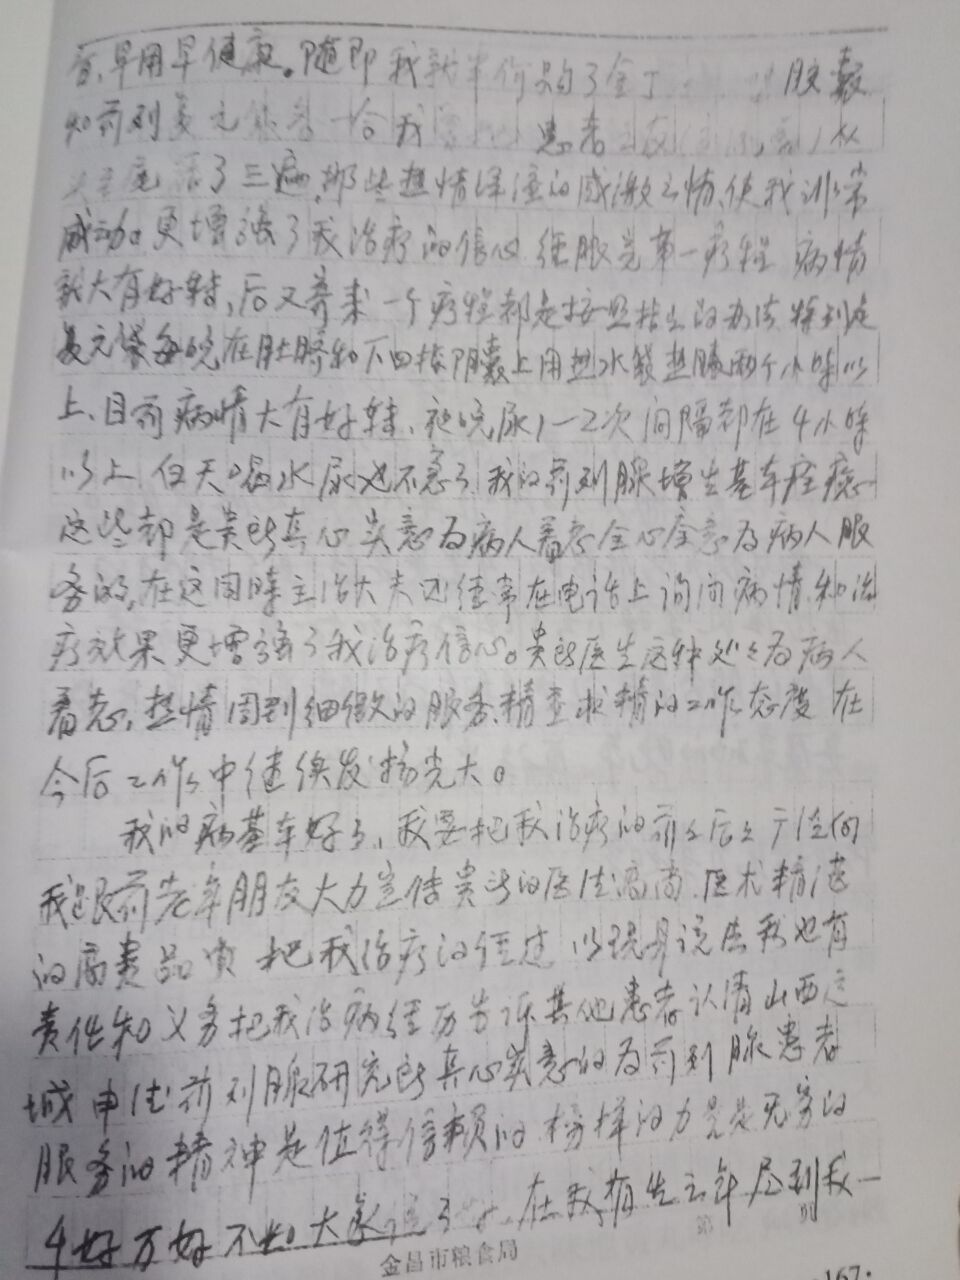 早用早健康。随即我就 购了 胶囊
和前列 给我 患者
了三遍,那些热情洋溢的感激之情,使我非常
感动。更增强了我治疗的信心 经服完第一疗程 病情
就大有好转,后又寄来一个疗程都是按照 的办法 特别是
复元 每晚在肚脐和下四指阴囊上用热水袋热 两个小时以
上、目前病情大有好转、夜晚尿1—2次间隔都在4小时
以上 白天喝水尿也不急了 我的前列腺增生基本痊愈
这些都是贵所真心实意为病人着想全心全意为病人服
务的,在这同时主治大夫还经常在电话上询问病情和治
疗效果更增强了我治疗信心。贵所医生这种处处为病人
着想,热情周到细微的服务、精益求精的工作态度 在
今后工作中继续发扬光大。
我的病基本好了,我要把我治疗的前前后后
我 前老年朋友大力宣传贵所的医德高尚 医术精湛
的高贵品质 把我治疗的经过 以现身说法我也有
责任和义务把我治病经历告诉其他患者认清山西运
城申 前列腺研究所真心实意的为前列腺患者
服务的精神是值得信赖的 榜样的力量是无穷的
千好万好不如大家 在我有生之年 尽到我一
金昌市粮食局
第 页
167·